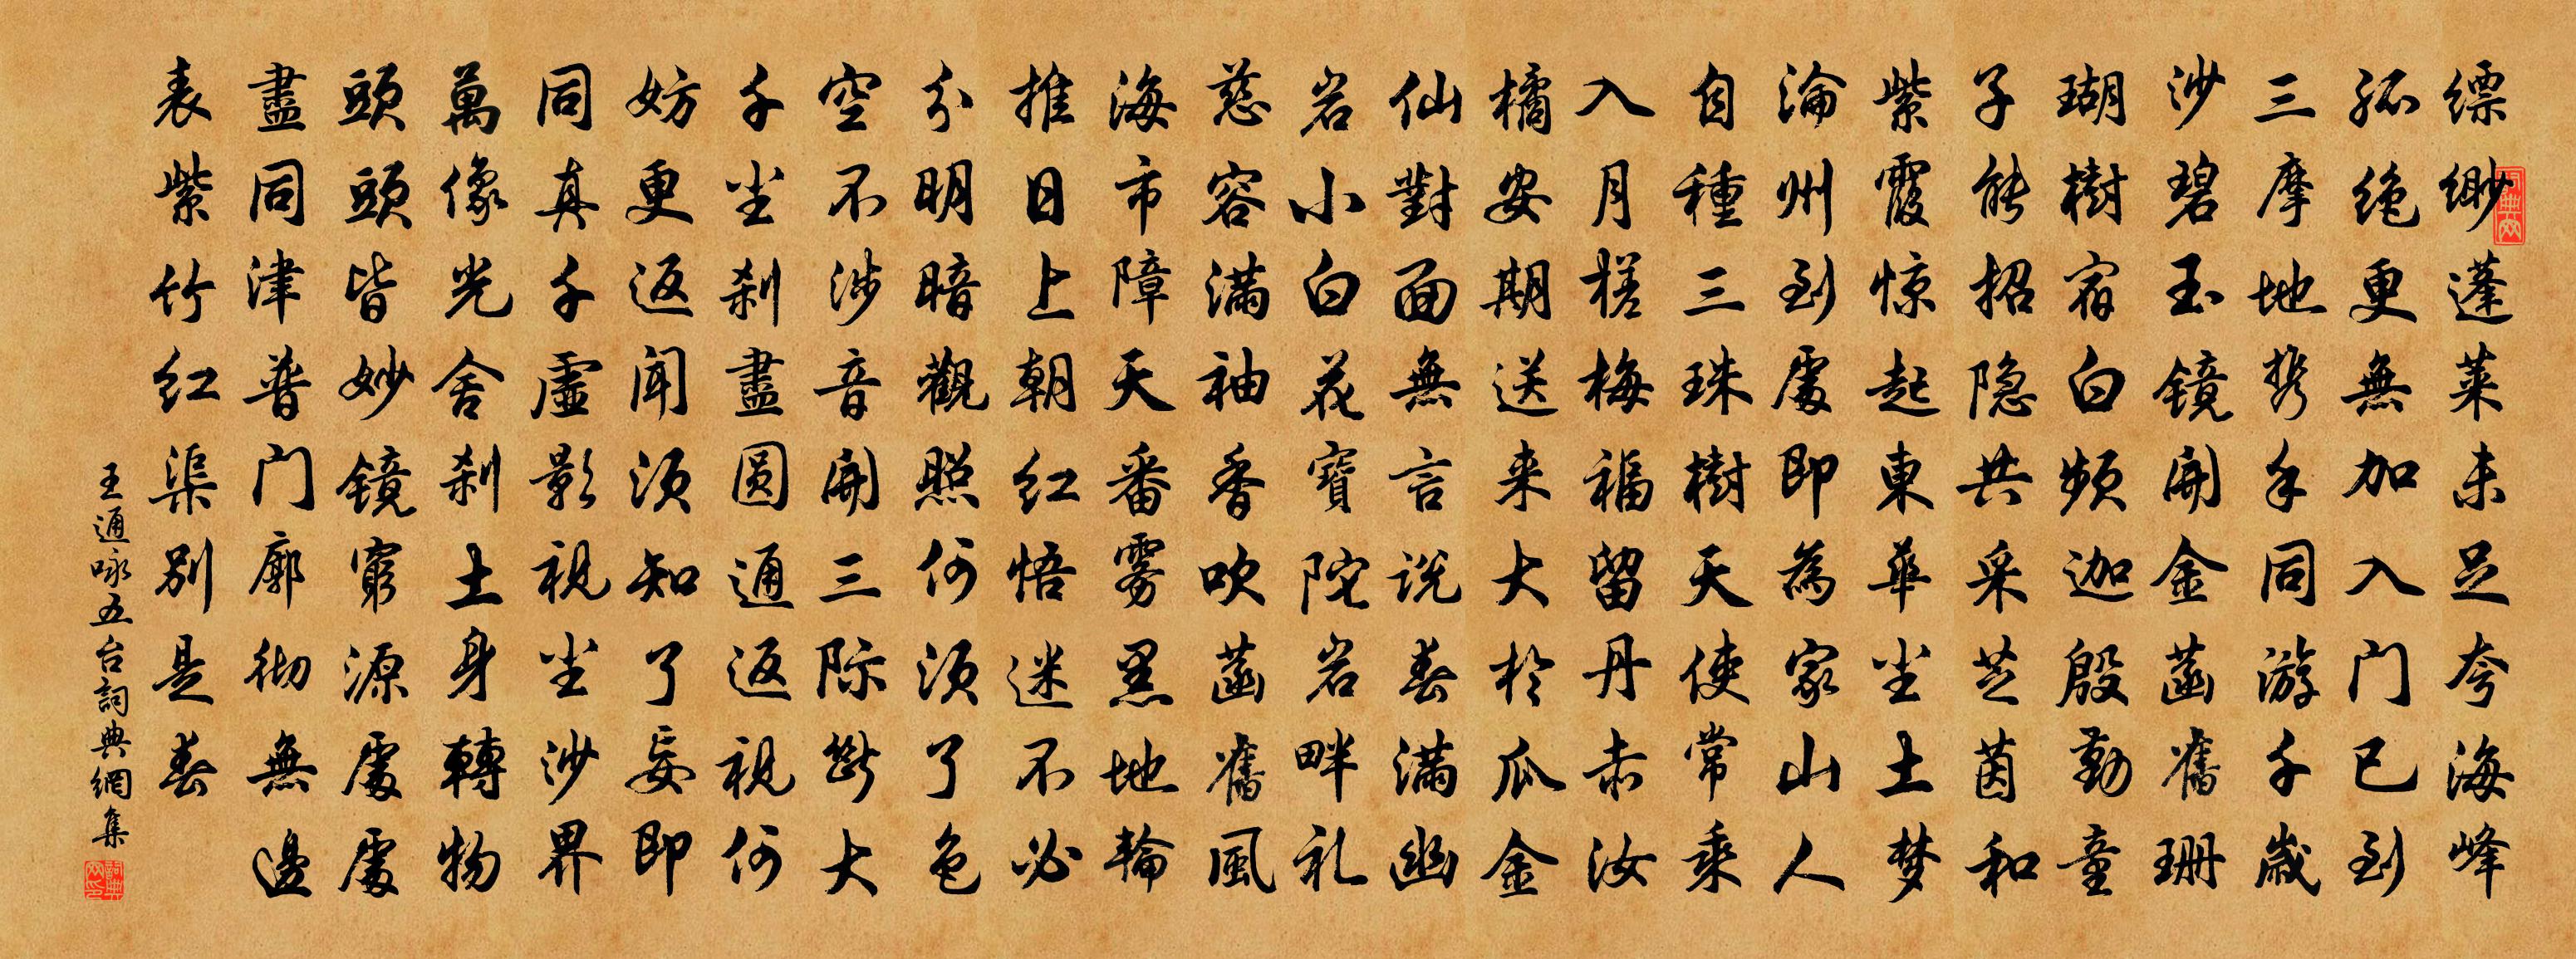 缥缈蓬莱未足夸海峰
孤绝更無加入门已到
三摩地携手同游千歲
沙碧玉镜開金菡舊珊
瑚樹宿白频迦殷勤童
子能招隐共采芝茵和
紫霞惊起東華尘土梦
淪州到處即為家山人
自種三珠樹天使常乘
入月槎梅福留丹赤汝
橘安期送来大於瓜金
仙對面無言说春滿幽
岩小白花寶陀岩畔礼
慈容滿袖香吹菡舊風
海市障天番雾黑地輪
推日上朝红悟迷不必
分明暗觀照何须了色
空不涉音開三际斷大
千尘刹盡圆通返視何
妨更返闻须知了妄即
同真千虚影視尘沙界
萬像光舍刹土身轉物
頭頭皆妙镜窮源處處
盡同津普门廓彻無邊
表紫竹红渠别是春
王通咏五台詞典網集